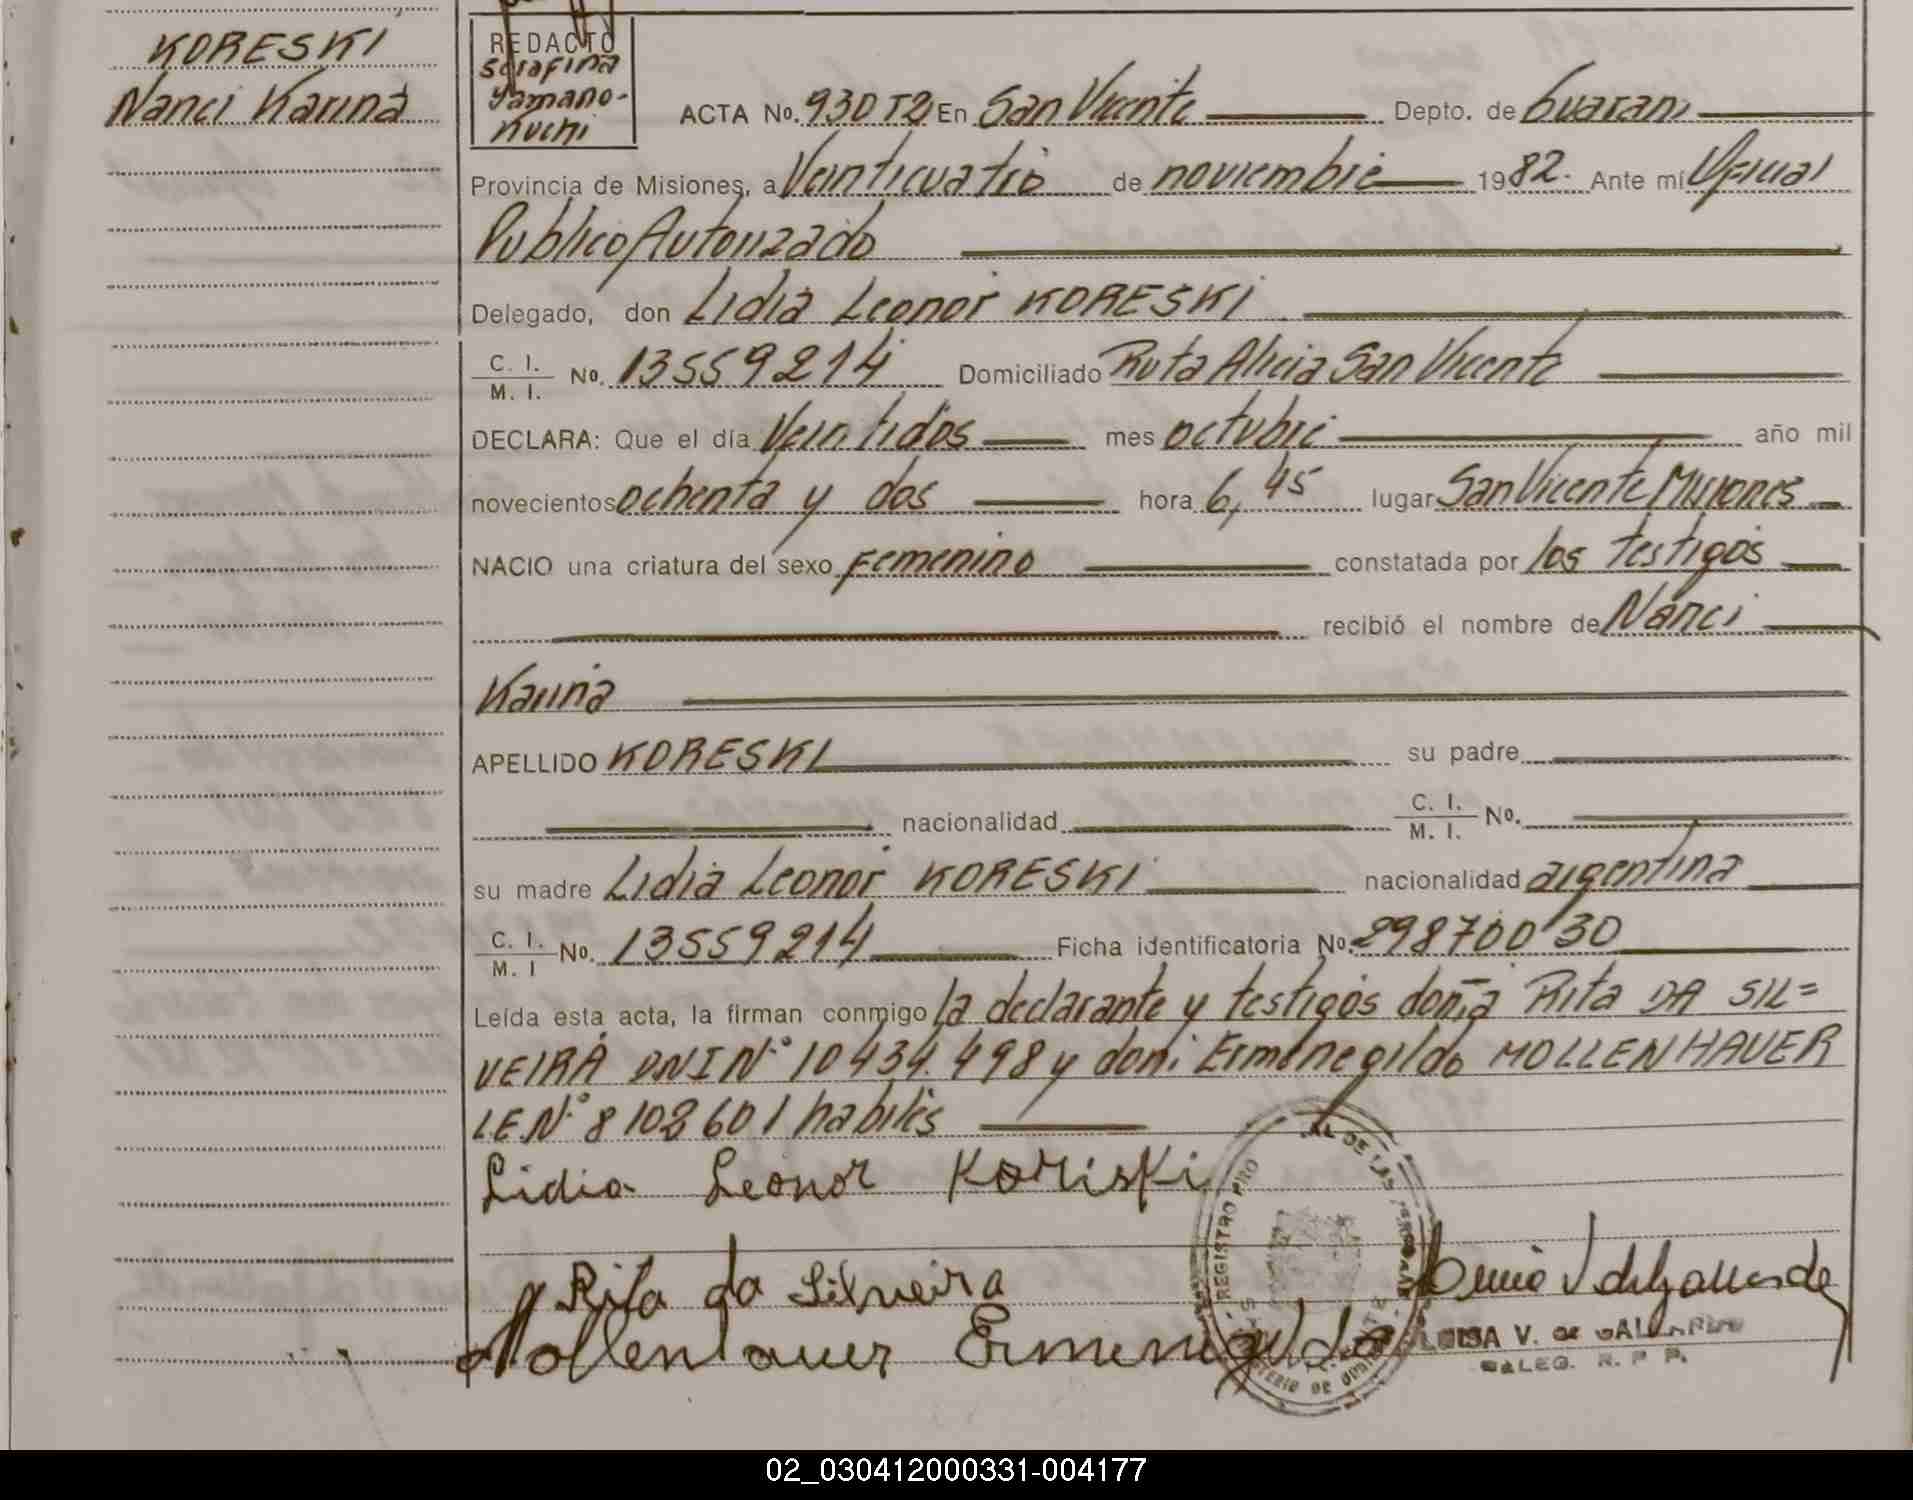 KORESKI
Nanci Karina
REDACTO
Serafina
Yamano-
Kuchi
ACTA No. 930 T2 En San Vicente Depto. de Guarani
Provincia de Misiones, a Veinticuatro de noviembre 1982. Ante mi Oficial
Publico Autorizado
Delegado, don Lidia Leonor KORESKI
C. I. / M. I. No. 13559214 Domiciliado Ruta Alicia San Vicente
DECLARA: Que el día Veintidos mes octubre año mil
novecientos ochenta y dos hora 6,45 lugar San Vicente Misiones
NACIO una criatura del sexo Femenino constatada por los testigos
recibió el nombre de Nanci
Karina
APELLIDO KORESKI su padre
nacionalidad C. I. / M. I. No.
su madre Lidia Leonor KORESKI nacionalidad argentina
C. I. / M. I No. 13559214 Ficha identificatoria No. 29870030
Leída esta acta, la firman conmigo la declarante y testigos doña Rita DA SIL=
VEIRA DNI N° 10434.498 y don: Ermenegildo MOLLENHAUER
LE N° 8108601 habiles
Lidia Leonor Koriski
Rita da Silveira
Mollenhauer Ermenegildo
REGISTRO PRO AL DE LAS PERSONAS
LUISA V. DE
DELEG. R. P. P.
02_030412000331-004177